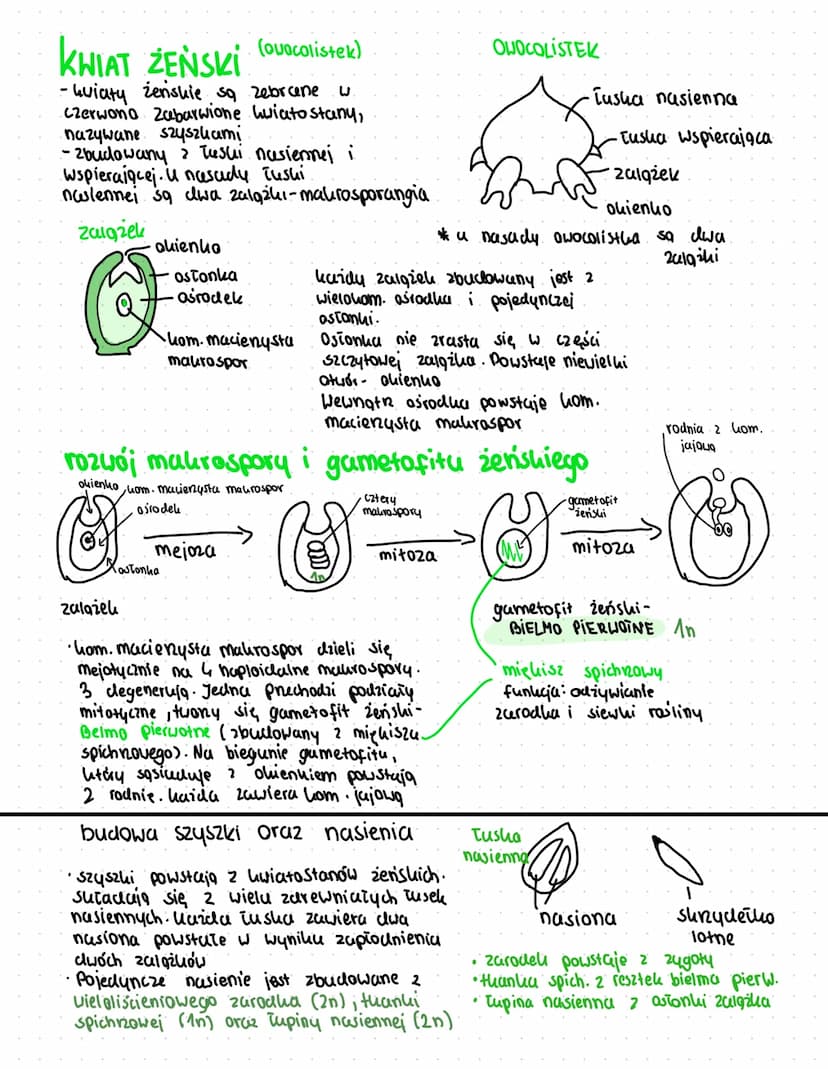 KWIAT ŻEŃSKI (owocolistek)
- kwiaty żeńskie są zebrane w
czerwono zabarwione kwiatostany,
nazywane szyszkami
- zbudowany z łuski nasiennej i
wspierającej. U nasady łuski
nasiennej są dwa zalążki - makrosporangia
OWOCOLISTEK
łuska nasienna
łuska wspierająca
zalążek
okienko
* u nasady owocolistka są dwa
zalążki
zalążek
okienko
osłonka
ośrodek
kom. macierzysta
makrospor
każdy zalążek zbudowany jest z
wielokom. ośrodka i pojedynczej
osłonki.
Osłonka nie zrasta się w części
szczytowej zalążka. Powstaje niewielki
otwór - okienko
Wewnątrz ośrodka powstaje kom.
macierzysta makrospor
rozwój makrospory i gametofitu żeńskiego
okienko
kom. macierzysta makrospor
ośrodek
osłonka
zalążek
mejoza
cztery
makrospory
1n
mitoza
gametofit
żeński
mitoza
rodnia z kom.
jajową
gametofit żeński -
BIELMO PIERWOTNE 1n
miękisz spichrzowy
funkcja: odżywianie
zarodka i siewki rośliny
· kom. macierzysta makrospor dzieli się
mejotycznie na 4 haploidalne makrospory.
3 degenerują. Jedna przechodzi podziały
mitotyczne, tworzy się gametofit żeński -
Belmo pierwotne (zbudowany z miękiszu
spichrzowego). Na biegunie gametofitu,
który sąsiaduje z okienkiem powstają
2 rodnie. każda zawiera kom. jajową
budowa szyszki oraz nasienia
· szyszki powstają z kwiatostanów żeńskich.
składają się z wielu zdrewniałych łusek
nasiennych. Każda łuska zawiera dwa
nasiona powstałe w wyniku zapłodnienia
dwóch zalążków
· Pojedyncze nasienie jest zbudowane z
wieloliścieniowego zarodka (2n), tkanki
spichrzowej (1n) oraz łupiny nasiennej (2n)
łuska
nasienna
nasiona
skrzydełko
lotne
• zarodek powstaje z zygoty
• tkanka spich. z resztek bielma pierw.
• łupina nasienna z osłonki zalążka